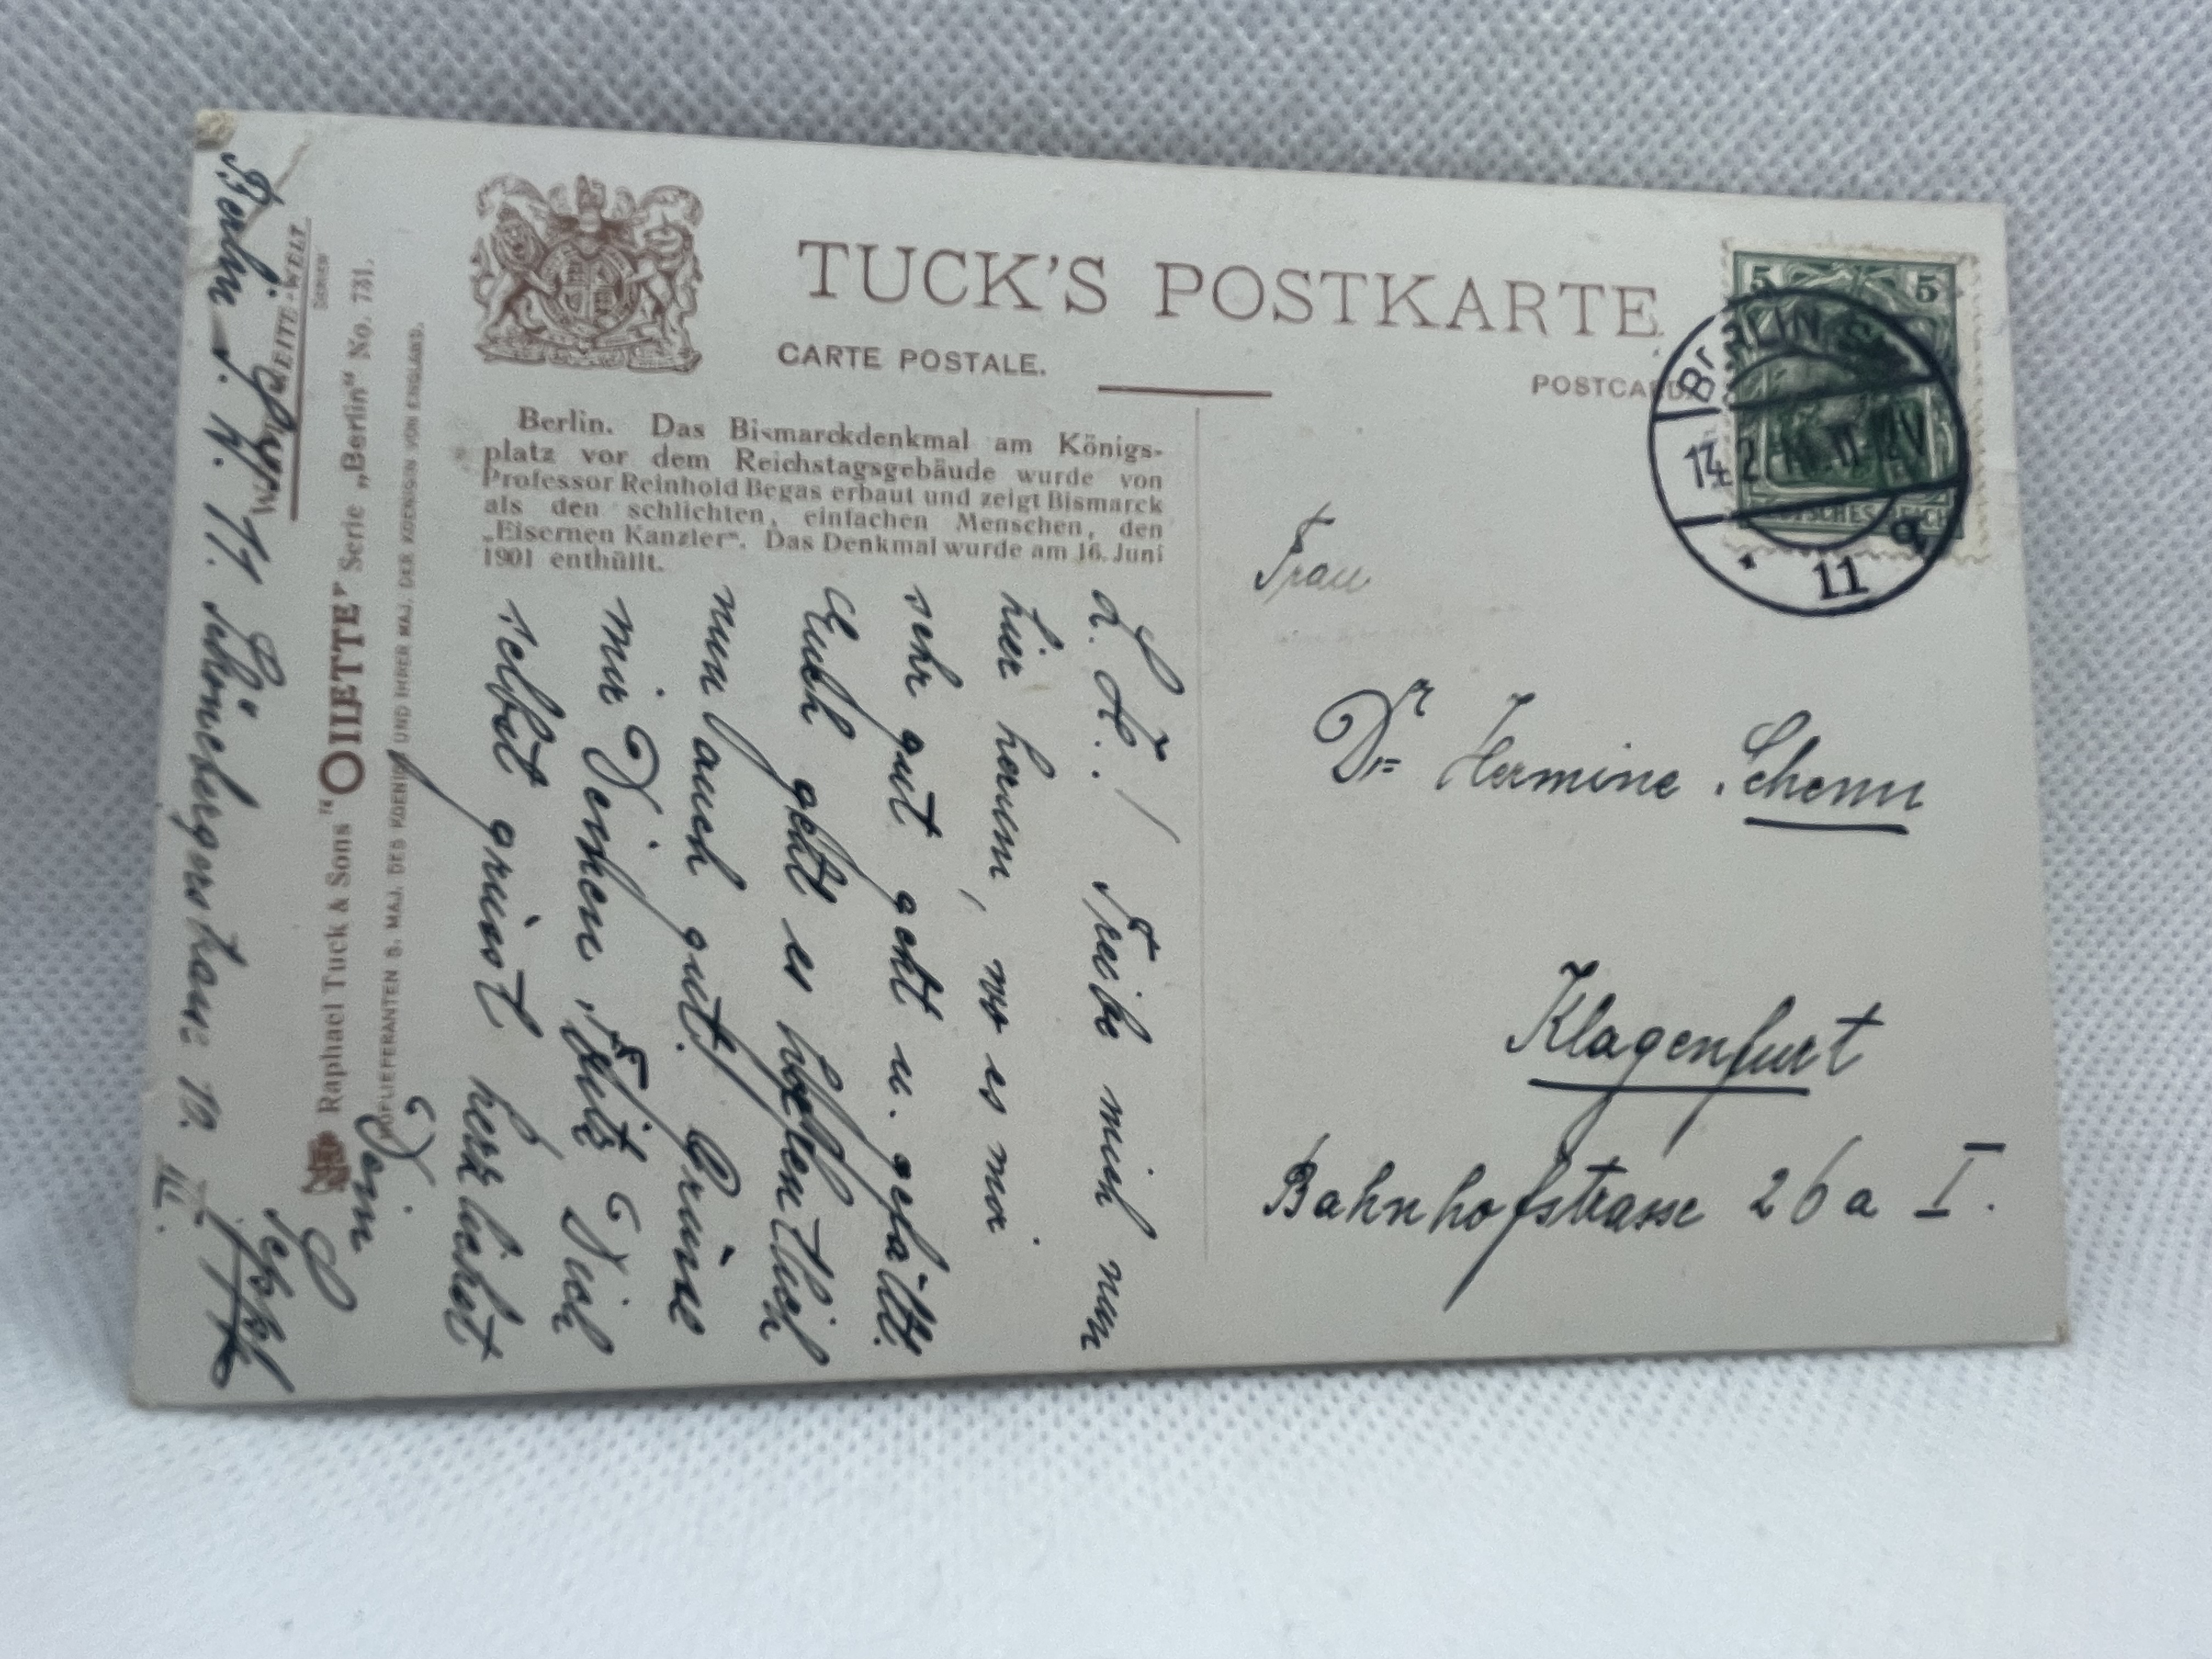 TUCK'S POSTKARTE
CARTE POSTALE.
POSTCARD
Berlin. Das Bismarckdenkmal am Königs-
platz vor dem Reichstagsgebäude wurde von
Professor Reinhold Begas erbaut und zeigt Bismarck
als den schlichten, einfachen Menschen, den
„Eisernen Kanzler". Das Denkmal wurde am 16. Juni
1901 enthüllt.
L. H.! Treibe mich nun
hier herum, wo es mir
sehr gut geht u. gefällt.
Euch geht es hoffentlich
nun auch gut. Grüsse
mir Deinen Fritz Dich
selbst grüsst herzlichst
Dein
Raphael Tuck & Sons' "OILETTE" Serie „Berlin" No. 731.
HOFLIEFERANTEN S. MAJ. DES KOENIGS UND IHRER MAJ. DER KOENIGIN VON ENGLAND.
WEITE-WELT
Berlin S. W. 11. Schönebergerstrasse 10. III.
5 5
DEUTSCHES REICH
BERLIN S
11
Frau
Dr Hermine Schenn
Klagenfurt
Bahnhofstrasse 26a I.